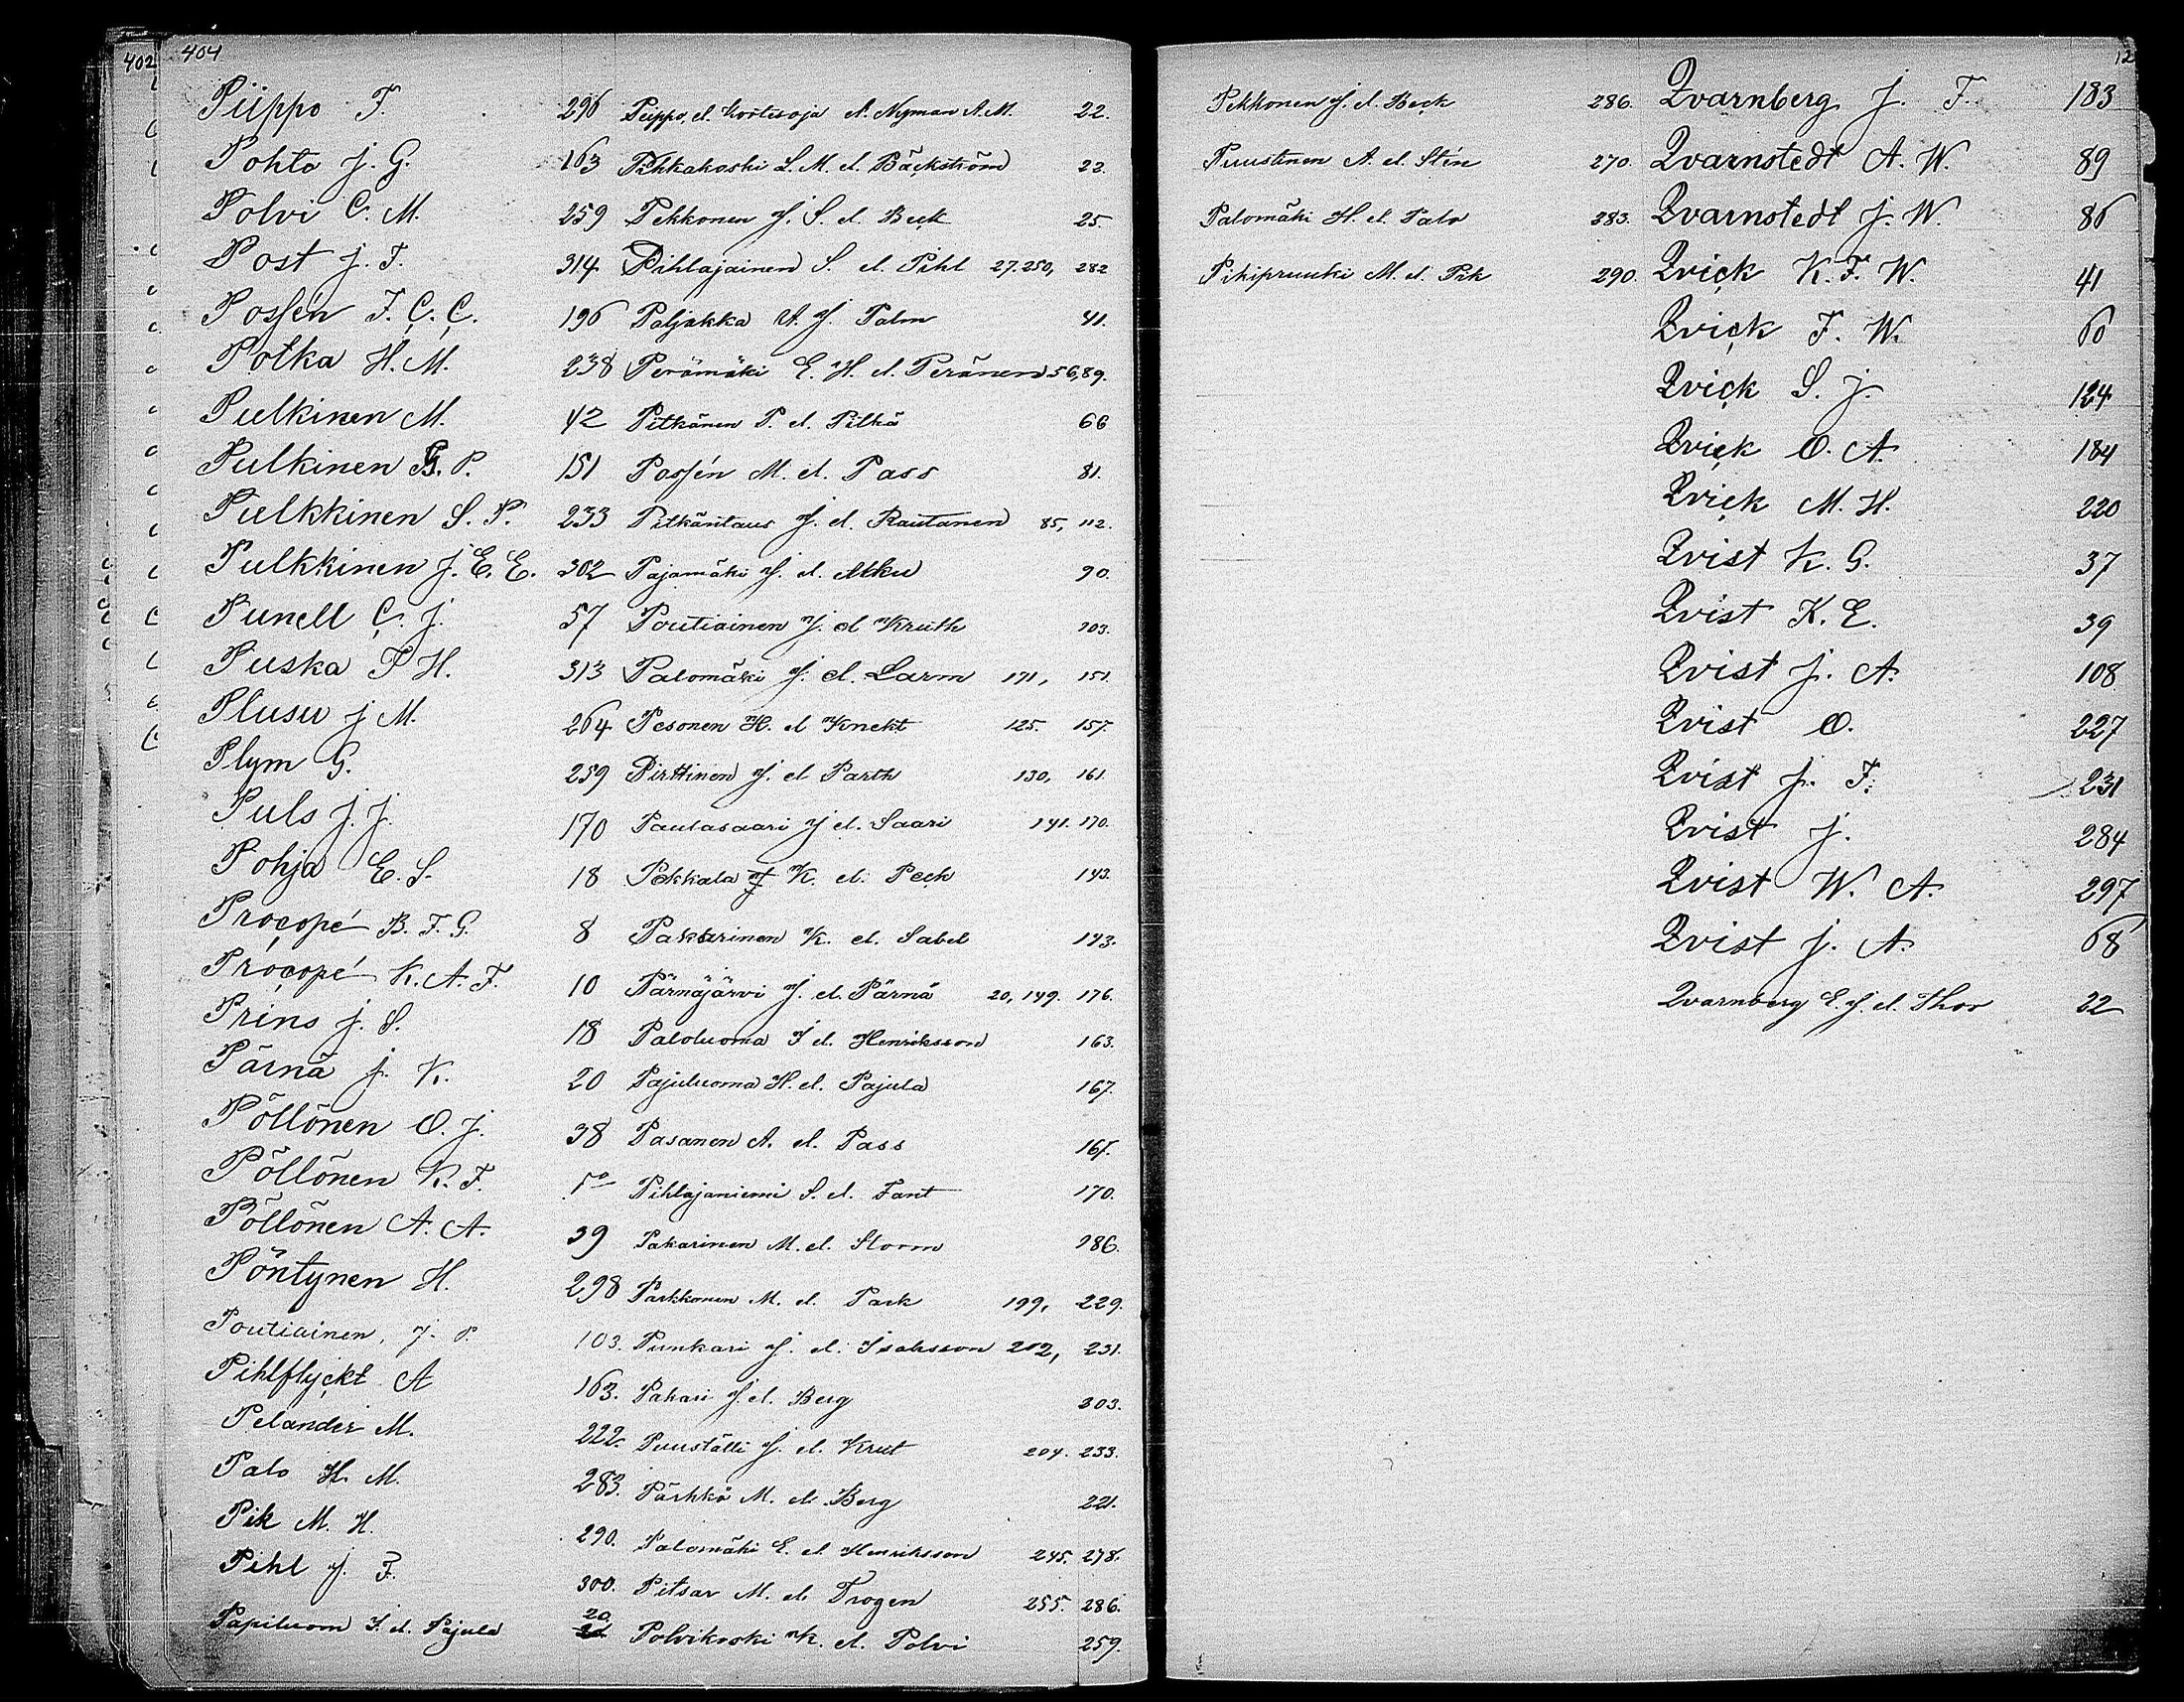 402
404
Piippo F. 296
Pohto J. G. 163
Polvi C. M. 259
Post J. F. 314
Possén F. C. C. 196
Potka H. M. 238
Pulkinen M. 42
Pulkinen G. P. 151
Pulkkinen S. P. 233
Pulkkinen J. E. E. 302
Punell C. J. 57
Puska F H. 313
Plusu J M. 264
Plym G. 259
Puls J. J. 170
Pohja E. S. 18
Procopé B. F. G. 8
Procopé K. A. F. 10
Prins J. S. 18
Pärnä J. K. 20
Pöllönen O. J. 38
Pöllönen K. F.
Pöllönen A. A. 39
Pöntynen H. 298
Poutiainen, J. P. 103.
Pihlflyckt A 163.
Pelander M. 222.
Palo H. M. 283.
Pik M. H. 290.
Pihl J. F. 300.
Papiluom I. el. Pajula 20
Piippo, el. Kortesoja A. Nyman A. M. 22.
Pihkakoski L. M. el. Bäckström 22.
Pekkonen J. S. el. Beck 25.
Pihlajainen S. el. Pihl 27. 250, 282
Paljakka A. J. Palm 41.
Perämäki E. H. el. Peränen 56, 89.
Pitkänen P. el. Pitkä 66
Possén M. el. Pass 81.
Pitkäntaus J. el. Rautanen 85, 112.
Pajamäki J. el. Alku 90.
Poutiainen J. el Kruth 103.
Palomäki J. el. Larm 171, 151.
Pesonen H. el Knekt 125. 157.
Pirttinen J. el Parth 130, 161.
Paulasaari J el. Saari 141. 170.
Pekkala K. el. Peck 143.
Pakkarinen K. el. Sabel 143.
Pärnäjärvi J. el. Pärnä 20, 149. 176.
Paloluoma I el. Henriksson 163.
Pajuluoma H. el. Pajula 167.
Pasanen A. el. Pass 167.
Pihlajaniemi S. el. Fant 170.
Pakarinen M. el. Storm 286.
Parkkonen M. el. Park 199, 229.
Punkari J. el. Isaksson 202, 231.
Pakari J. el. Berg 203.
Puuställi J. el. Krut 204. 233.
Pärkkä M. el. Berg 221.
Palomäki E. el. Henriksson 245. 278.
Pitsar M. el. Trogen 255. 286.
Polvikoski K. el. Polvi 259.
Pekkonen J. el. Beck 286.
Puustinen A. el. Stén 270.
Palomäki H. el. Palo 283.
Pikipruuki M. el. Pik 290.
12
Qvarnberg J. F. 183
Qvarnstedt A. W. 89
Qvarnstedt J. W. 86
Qvick K. F. W. 41
Qvick F. W. 60
Qvick S. J. 124
Qvick O. A. 184
Qvick M. H. 220
Qvist K. G. 37
Qvist K. E. 39
Qvist J. A. 108
Qvist O. 227
Qvist J. F. 231
Qvist J. 284
Qvist W. A. 297
Qvist J. A. 68
Qvarnberg E. J. el. Thor 22